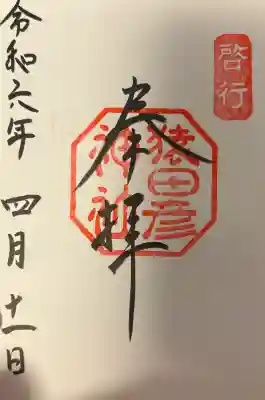 啓行
奉拝
猿田彦
神社
令和六年 四月 十一日